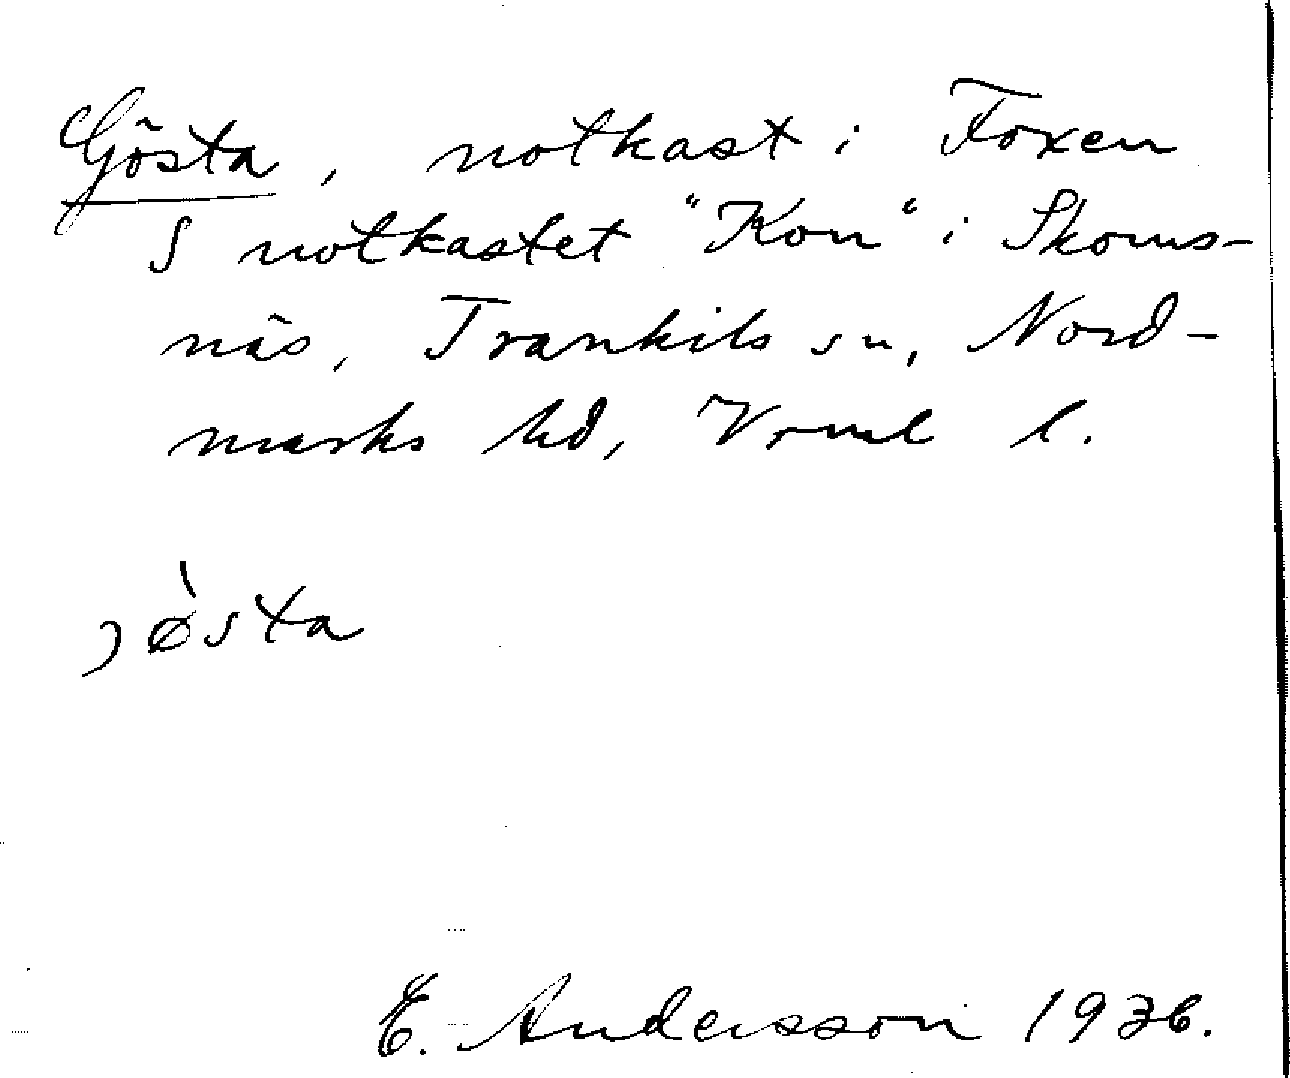 Gösta, notkast i Foxen
S notkastet "Kon" i Skoms-
näs, Trankils sn, Nord-
marks hd, Vrml l.
jøsta
E. Andersson 1936.